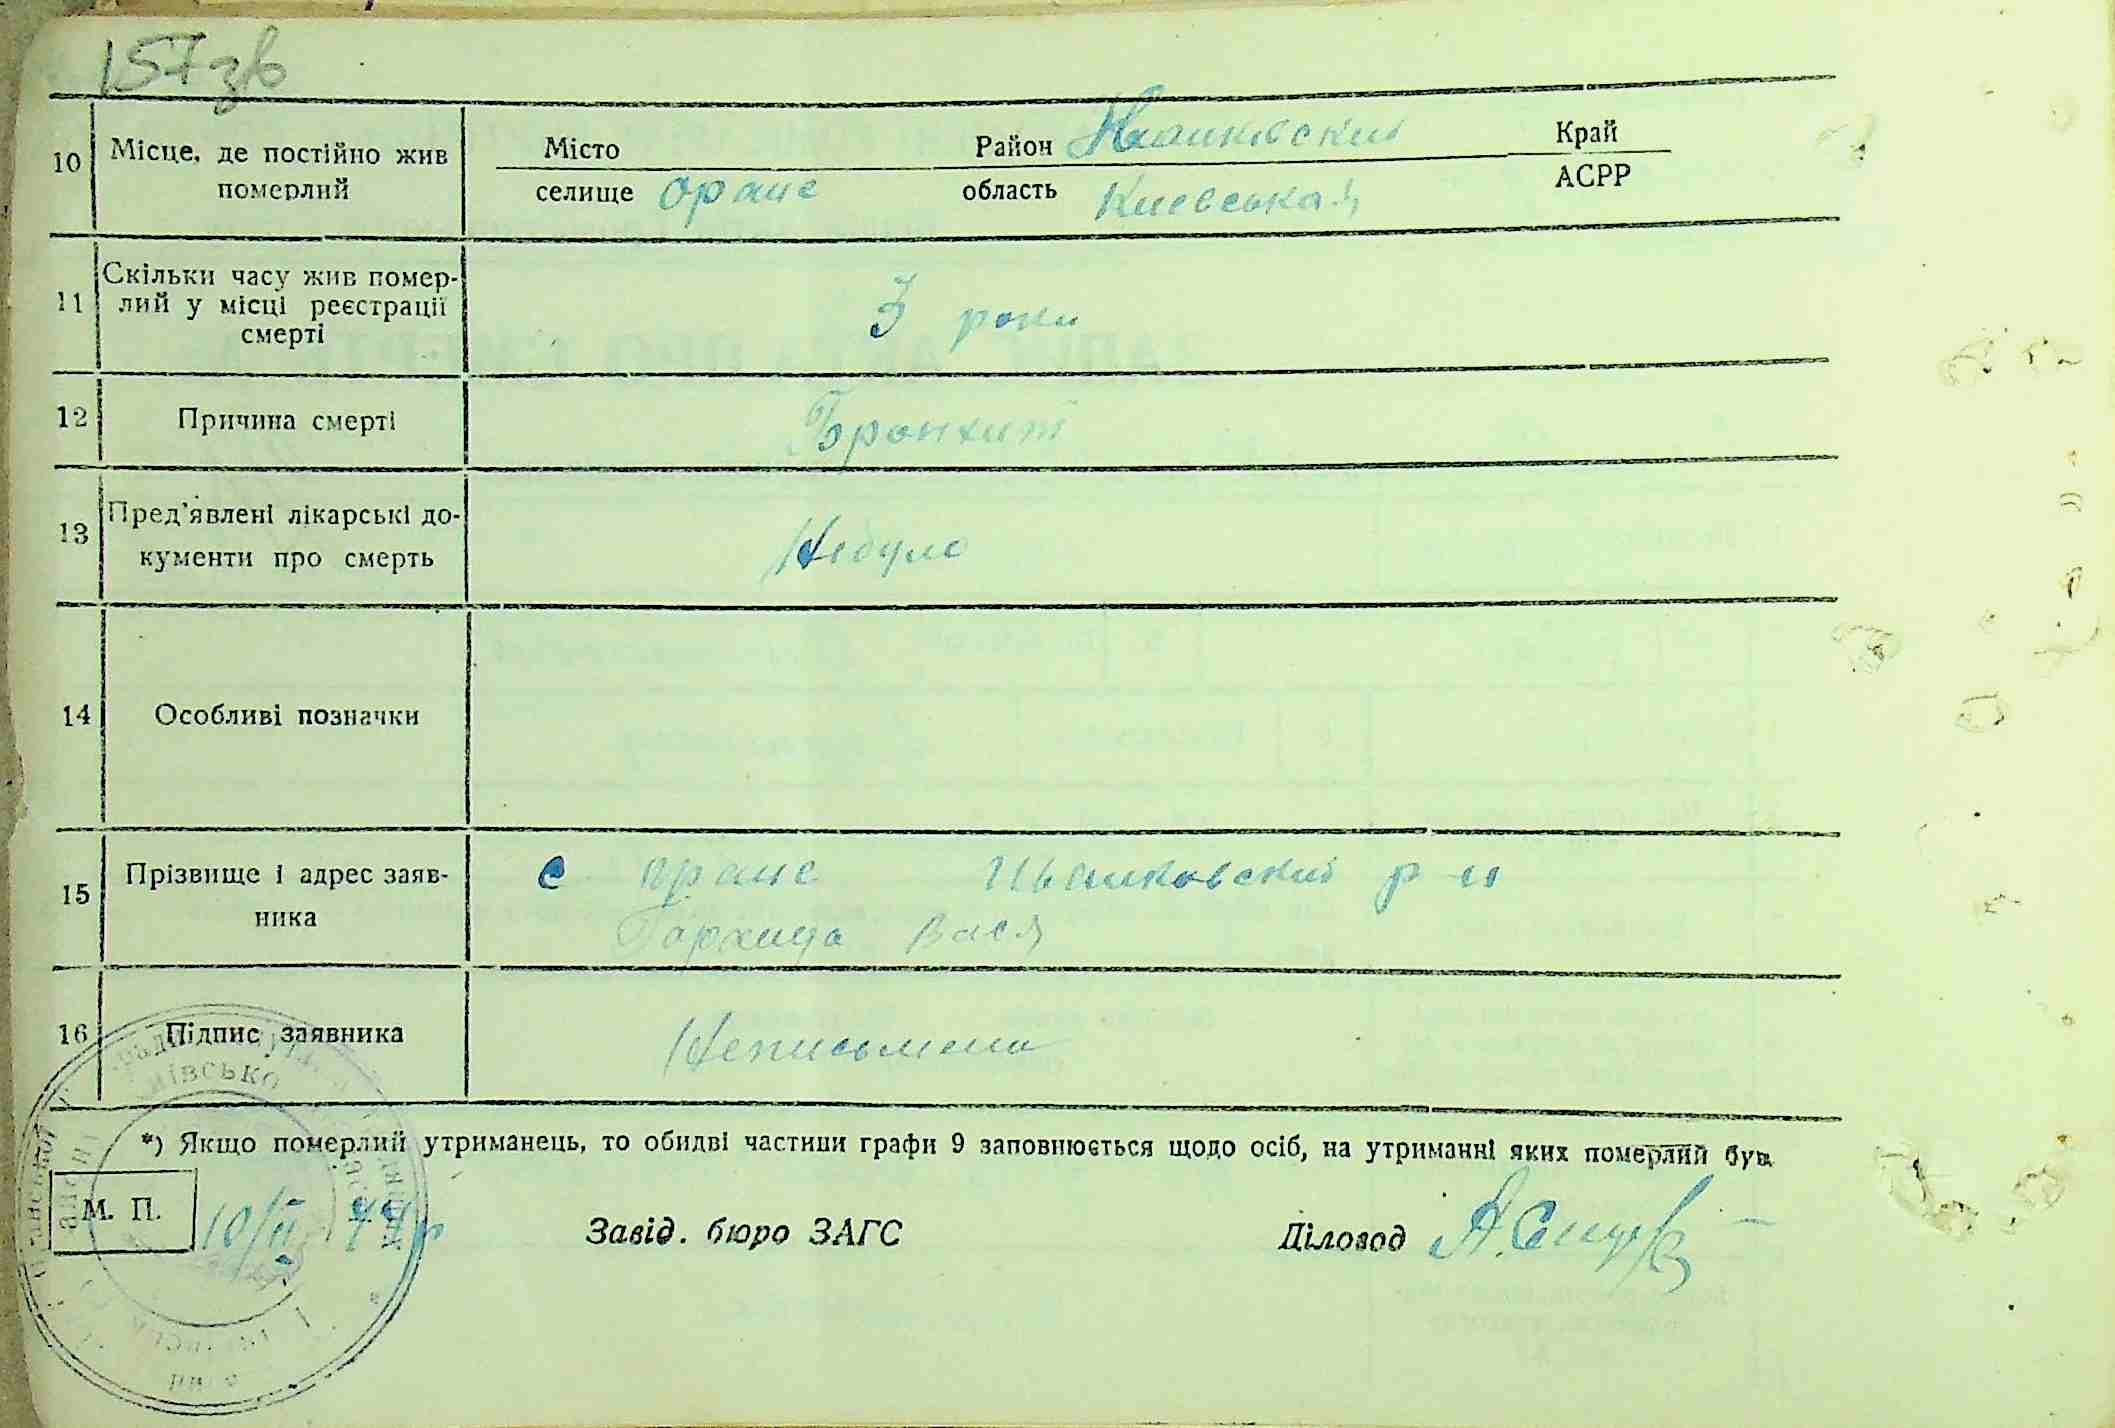 157 зв
10 Місце, де постійно жив померлий
Місто Район Край
селище Оране область Киевська АСРР
11 Скільки часу жив помер-
лий у місці реєстрації
смерті
3 роки
12 Причина смерті Бронхит
13 Пред'явлені лікарські до-
кументи про смерть
Небуло
14 Особливі позначки
15 Прізвище і адрес заяв-
ника
с Оране Иванковский р-н
Вася
16 Підпис заявника Неписьмена
*) Якщо померлий утриманець, то обидві частини графи 9 заповнюється щодо осіб, на утриманні яких померлий був.
М. П. 10/II 44р Завід. бюро ЗАГС Діловод